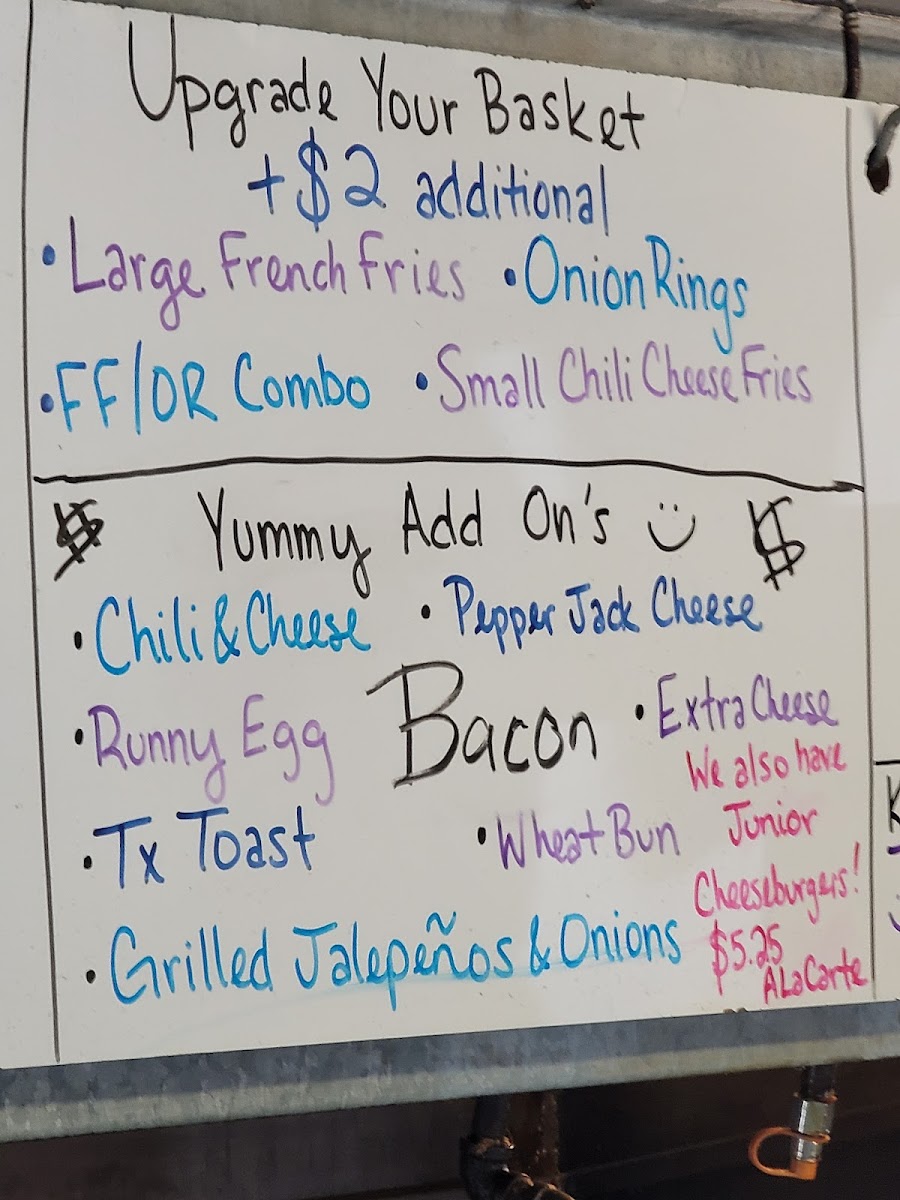 Upgrade Your Basket
+$2 additional
• Large French Fries • Onion Rings
• FF/OR Combo • Small Chili Cheese Fries
$ Yummy Add On's $
• Chili & Cheese • Pepper Jack Cheese
• Runny Egg Bacon • Extra Cheese
• Tx Toast • Wheat Bun
• Grilled Jalepeños & Onions
We also have
Junior
Cheeseburgers!
$5.25
ALaCarte